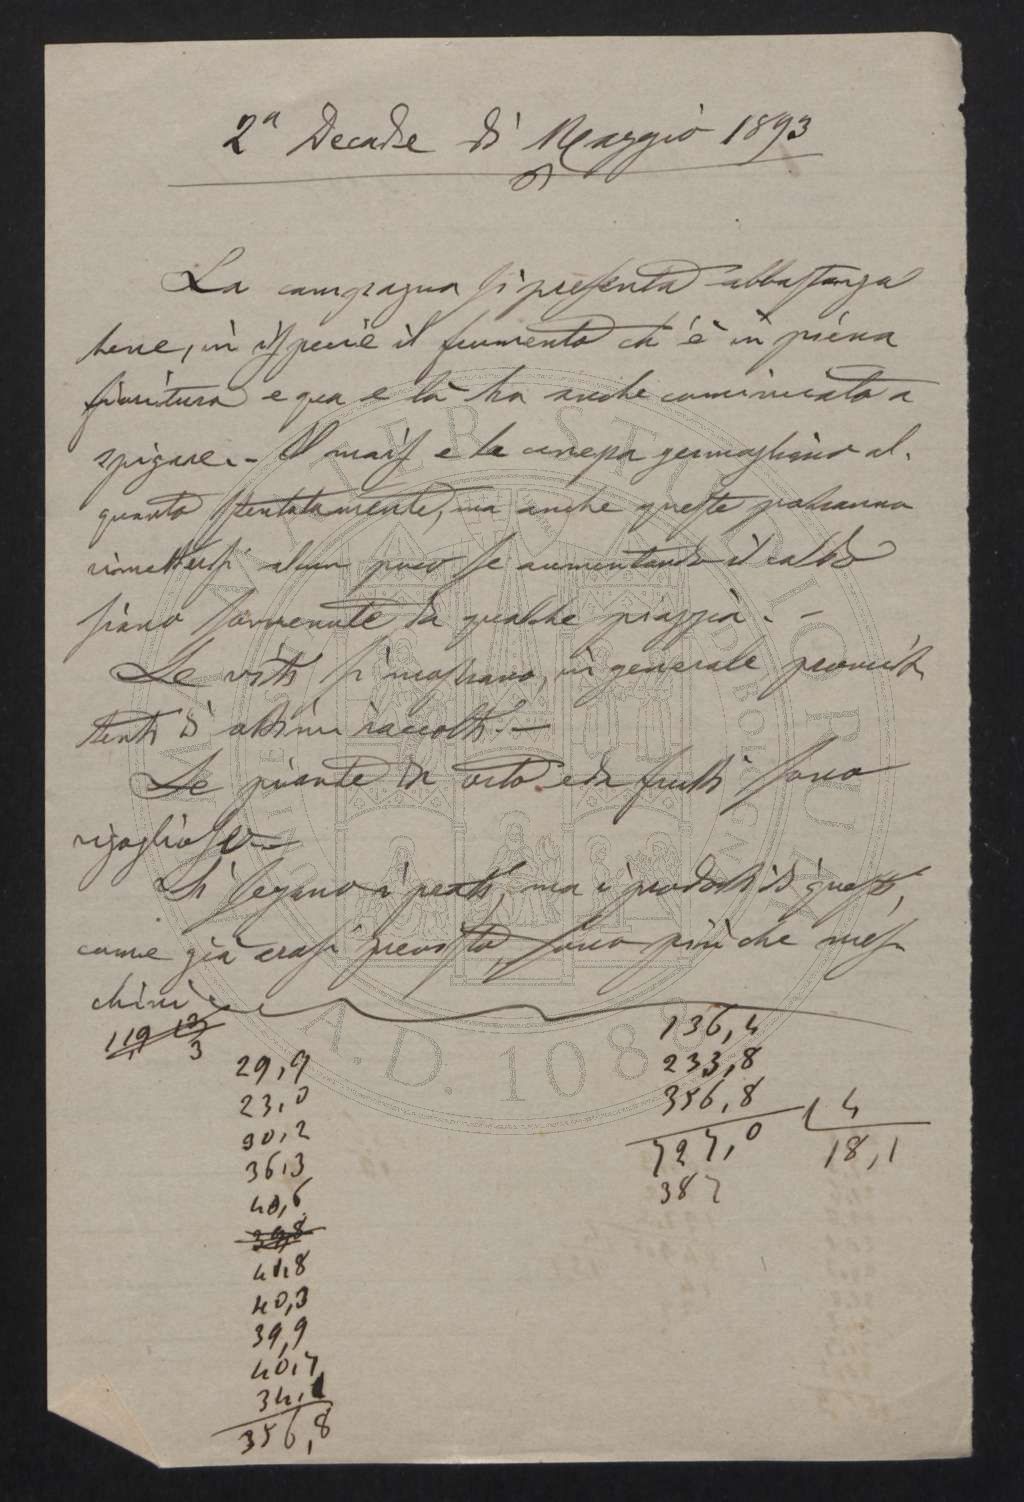 2ª Decade di Maggio 1893
La campagna si presenta abbastanza
bene, in ispecie il frumento ch'è in piena
fioritura e qua e là ha anche cominciato a
spigare. - Il mais e la canepa germogliano al-
quanto stentatamente, ma anche queste potranno
rimettersi alcun poco se aumentando il caldo
siano sovvenute da qualche pioggia. -
Le viti si mostrano, in generale promet-
tenti di ottimi raccolti. -
Le piante da orto e da frutti sono
rigogliose -
Si segano i prati, ma i prodotti di questi,
come già erasi previsto, sono più che mes-
chini
29,9
23,0
30,2
36,3
40,6
39,8
41,8
40,3
39,9
40,7
34,1
356,8
136,4
233,8
356,8
727,0 4
387 18,1
ALMA MATER STUDIORUM
A.D. 1088